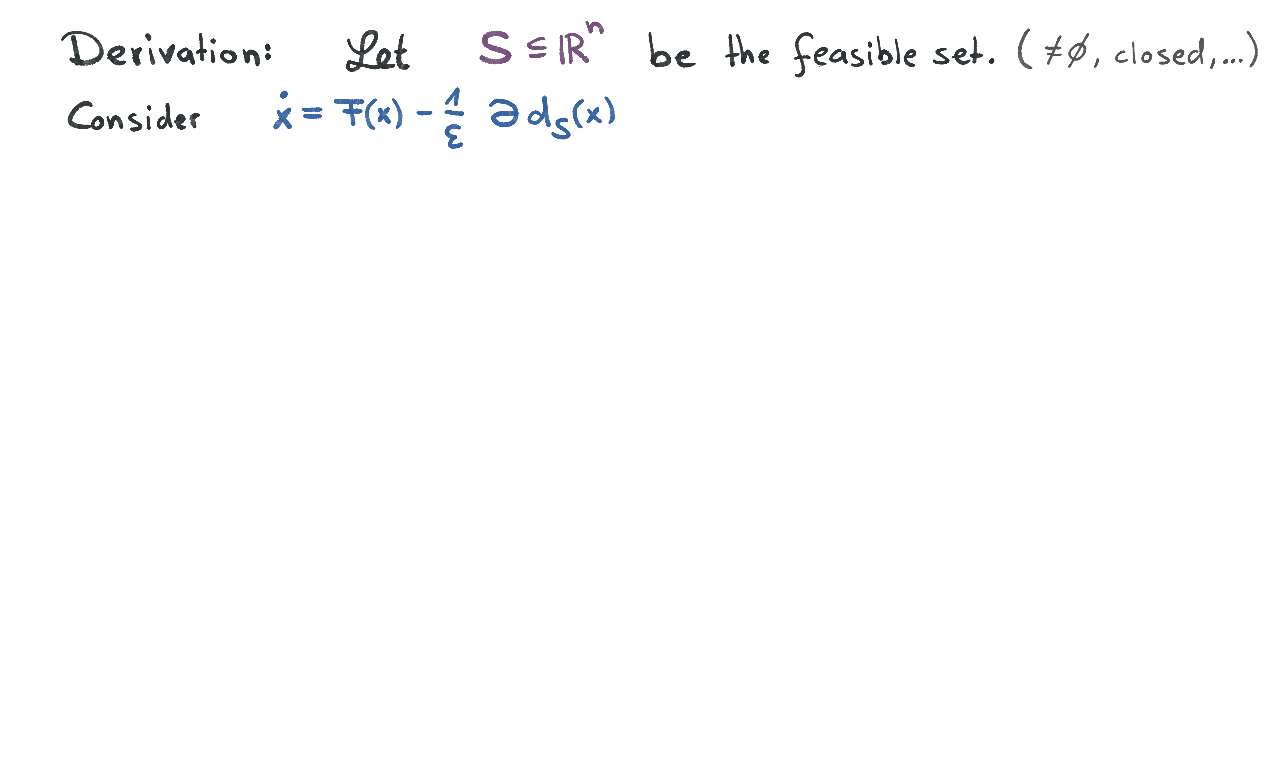 Derivation: Let S ⊆ ℝⁿ be the feasible set. (≠∅, closed,...)
Consider ẋ = F(x) - 1/ε ∂d_S(x)